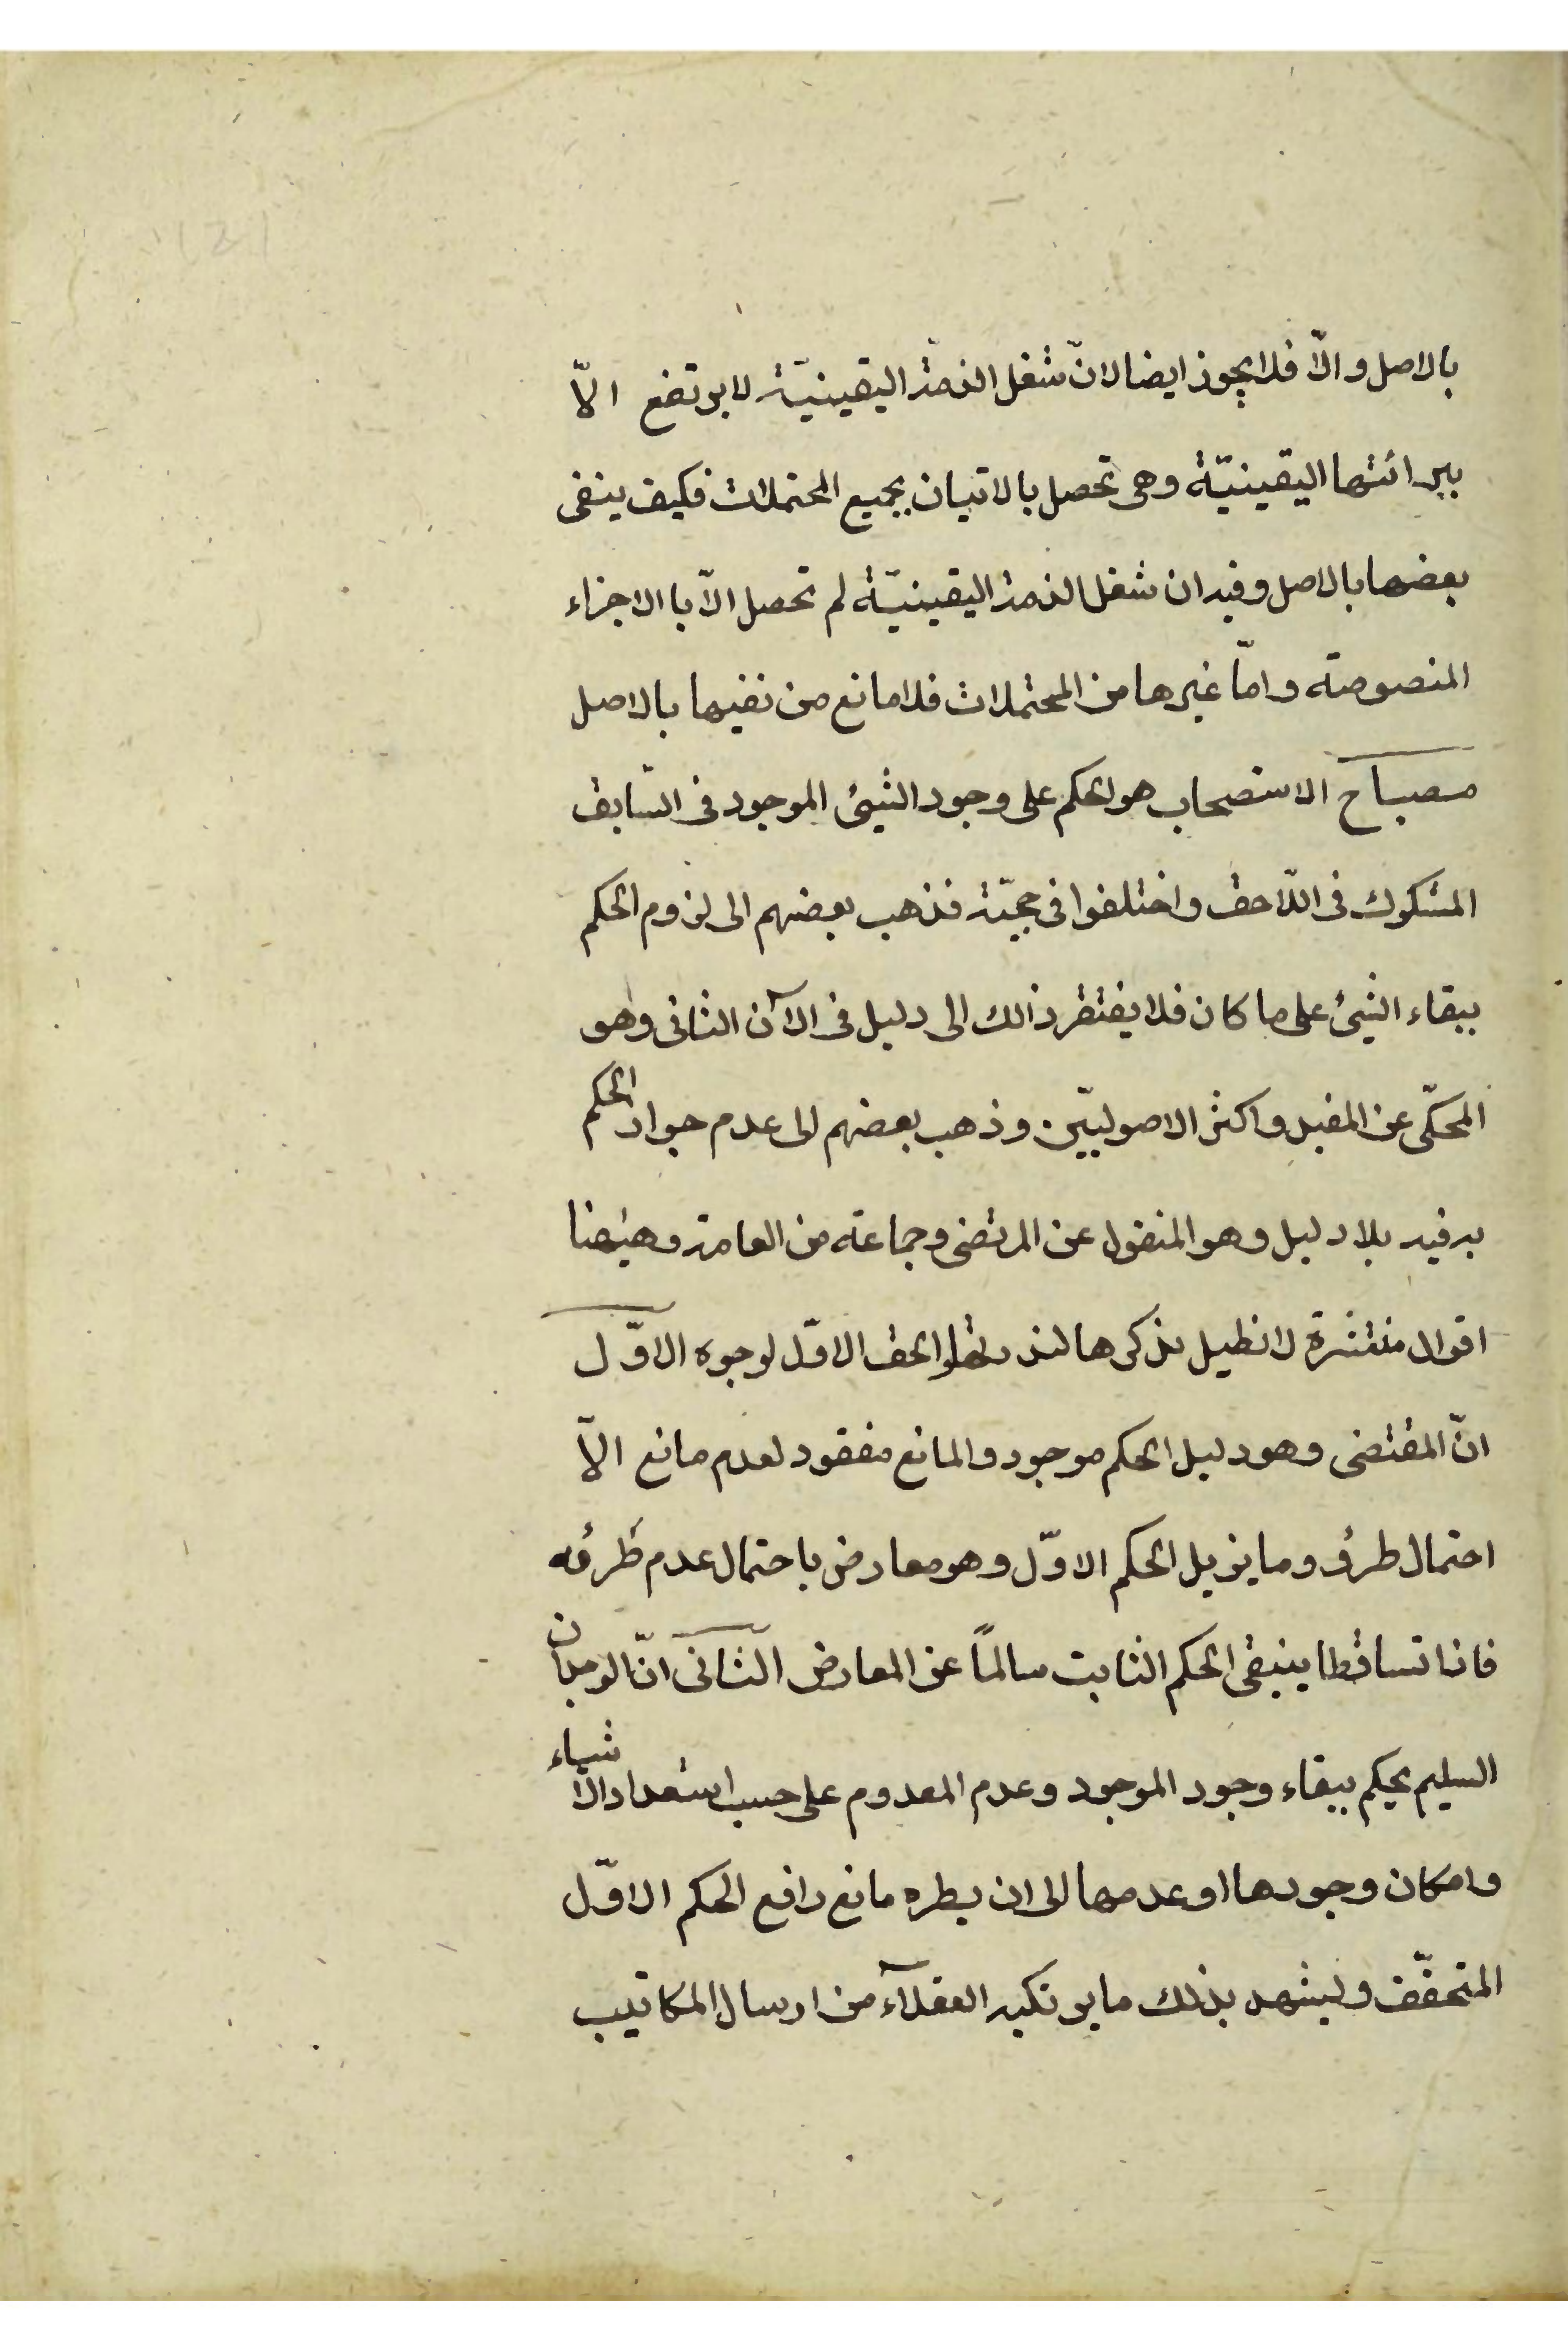 بالاصل والّا فلا يجوز ايضا لانّ شغل الذمة اليقينيّة لا يرتفع الّا
ببرائتها اليقينيّة وهى تحصل بالاتيان بجميع المحتملات فكيف ينفى
بعضها بالاصل وفيه ان شغل الذمة اليقينيّة لم تحصل الّا با الاجزاء
المنصوصة وامّا غيرها من المحتملات فلا مانع من نفيها بالاصل
مصباح الاستصحاب هو الحكم على وجود الشيئ الموجود فى السّابق
المشكوك فى اللّاحق واختلفوا فى حجيّته فذهب بعضهم الى لزوم الحكم
ببقاء الشيئ على ما كان فلا يفتقر ذالك الى دليل فى الآن الثانى وهو
المحكّى عن المفيد واكثر الاصوليّين وذهب بعضهم الى عدم جواز الحكم
به فيه بلا دليل وهو المنقول عن المرتضى وجماعة من العامة وهيهنا
اقوال منتشرة لا نطيل بذكرها والحق الاوّل لوجوه الاوّل
انّ المقتضى وهو دليل الحكم موجود والمانع مفقود لعدم مانع الّا
احتمال طرؤ وما يزيل الحكم الاوّل وهو معارض باحتمال عدم طرؤه
فاذا تساقطا ينبقى الحكم الثابت سالمًا عن المعارض الثانى انّ الوجدان
السليم يحكم ببقاء وجود الموجود وعدم المعدوم على حسب استعداد الاشياء
وامكان وجودها او عدمها الى ان يطره مانع رافع الحكم الاوّل
المتحقّق وليشهد بذلك ما يرتكبه العقلآء من ارسال المكاتيب